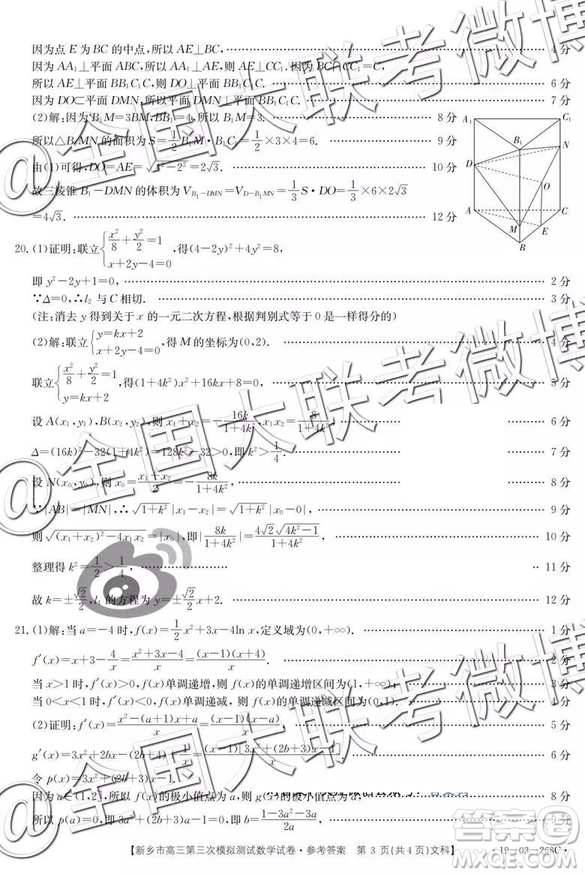 因为点 E 为 BC 的中点,所以 AE⊥BC, 4 分
因为 AA₁⊥平面 ABC,AA₁∥CC₁,则 AE⊥CC₁,因为 BC∩CC₁=C,
所以 AE⊥平面 BB₁C₁C,则 DO⊥平面 BB₁C₁C, 6 分
因为 DO⊂平面 DMN,所以平面 DMN 7 分
(2)解:因为 B₁M=3BM,BB₁=4,所以 B₁M=3. 8 分
所以△B₁MN 的面积为 S=1/2×B₁M·B₁C₁=1/2×3×4=6. 9 分
由(1)可得,DO=AE= =2√3. 10 分
故三棱锥 B₁-DMN 的体积为 V_{B₁-DMN}=V_{D-B₁MN}=1/3 S·DO=1/3×6×2√3
=4√3. 12 分
A₁ B₁ N D O A C M E B
20.(1)证明:联立{x²/8+y²/2=1 x+2y-4=0,得(4-2y)²+4y²=8,
即 y²-2y+1=0, 2 分
∵Δ=0,∴l₂ 与 C 相切. 3 分
(注:消去 y 得到关于 x 的一元二次方程,根据判别式等于 0 是一样得分的)
(2)解:联立{y=kx+2 x+2y-4=0,得 M 的坐标为(0,2). 4 分
联立{x²/8+y²/2=1 y=kx+2,得(1+4k²)x²+16kx+8=0, 5 分
设 A(x₁,y₁),B(x₂,y₂),则 x₁+x₂=-16k/(1+4k²),x₁x₂=8/(1+4k²) 6 分
Δ=(16k)²-32(1+4k²)=128k²-32>0,即 k²>1/4. 7 分
设 N(x₀,y₀),则 x₀= 8 分
∵|AB|=|MN|,∴√(1+k²)|x₁-x₂|=√(1+k²)|x₀-0|, 9 分
则√((x₁+x₂)²-4x₁x₂)=|x₀|,即|8k/(1+4k²)|=4√2√(4k²-1)/(1+4k²) 10 分
整理得 k²=1/2>1/4, 11 分
故 k=±√2/2,l₁ 的方程为 y=±√2/2x+2. 12 分
21.(1)解:当 a=-4 时,f(x)=1/2x²+3x-4ln x,定义域为(0,+∞). 1 分
f′(x)=x+3-4/x=(x²+3x-4)/x=(x-1)(x+4)/x. 2 分
当 x>1 时,f′(x)>0,f(x)单调递增,则 f(x)的单调递增区间为(1,+∞). 3 分
当 0<x<1 时,f′(x)<0,f(x)单调递减,则 f(x)的单调递减区间为(0,1). 4 分
(2)证明:f′(x)=(x²-(a+1)x+a)/x= 5 分
g′(x)=3x²+(2b+3)x 6 分
令 p(x)=3x²+(2b+3)x-1.
因为 a∈(1,2],所以 f(x)的极小值点为 a,则 g(x) 8 分
所以 p(a)=0,即 3a²+(2b+3)a-1=0,即 b=(1-3a²-3a)/2a. 9 分
【新乡市高三第三次模拟测试数学试卷·参考答案 第 3 页(共 4 页)文科】
·19-03-268C·
@全国大联考微博
@全国大联考微博
@全国大联考微博
答案圈